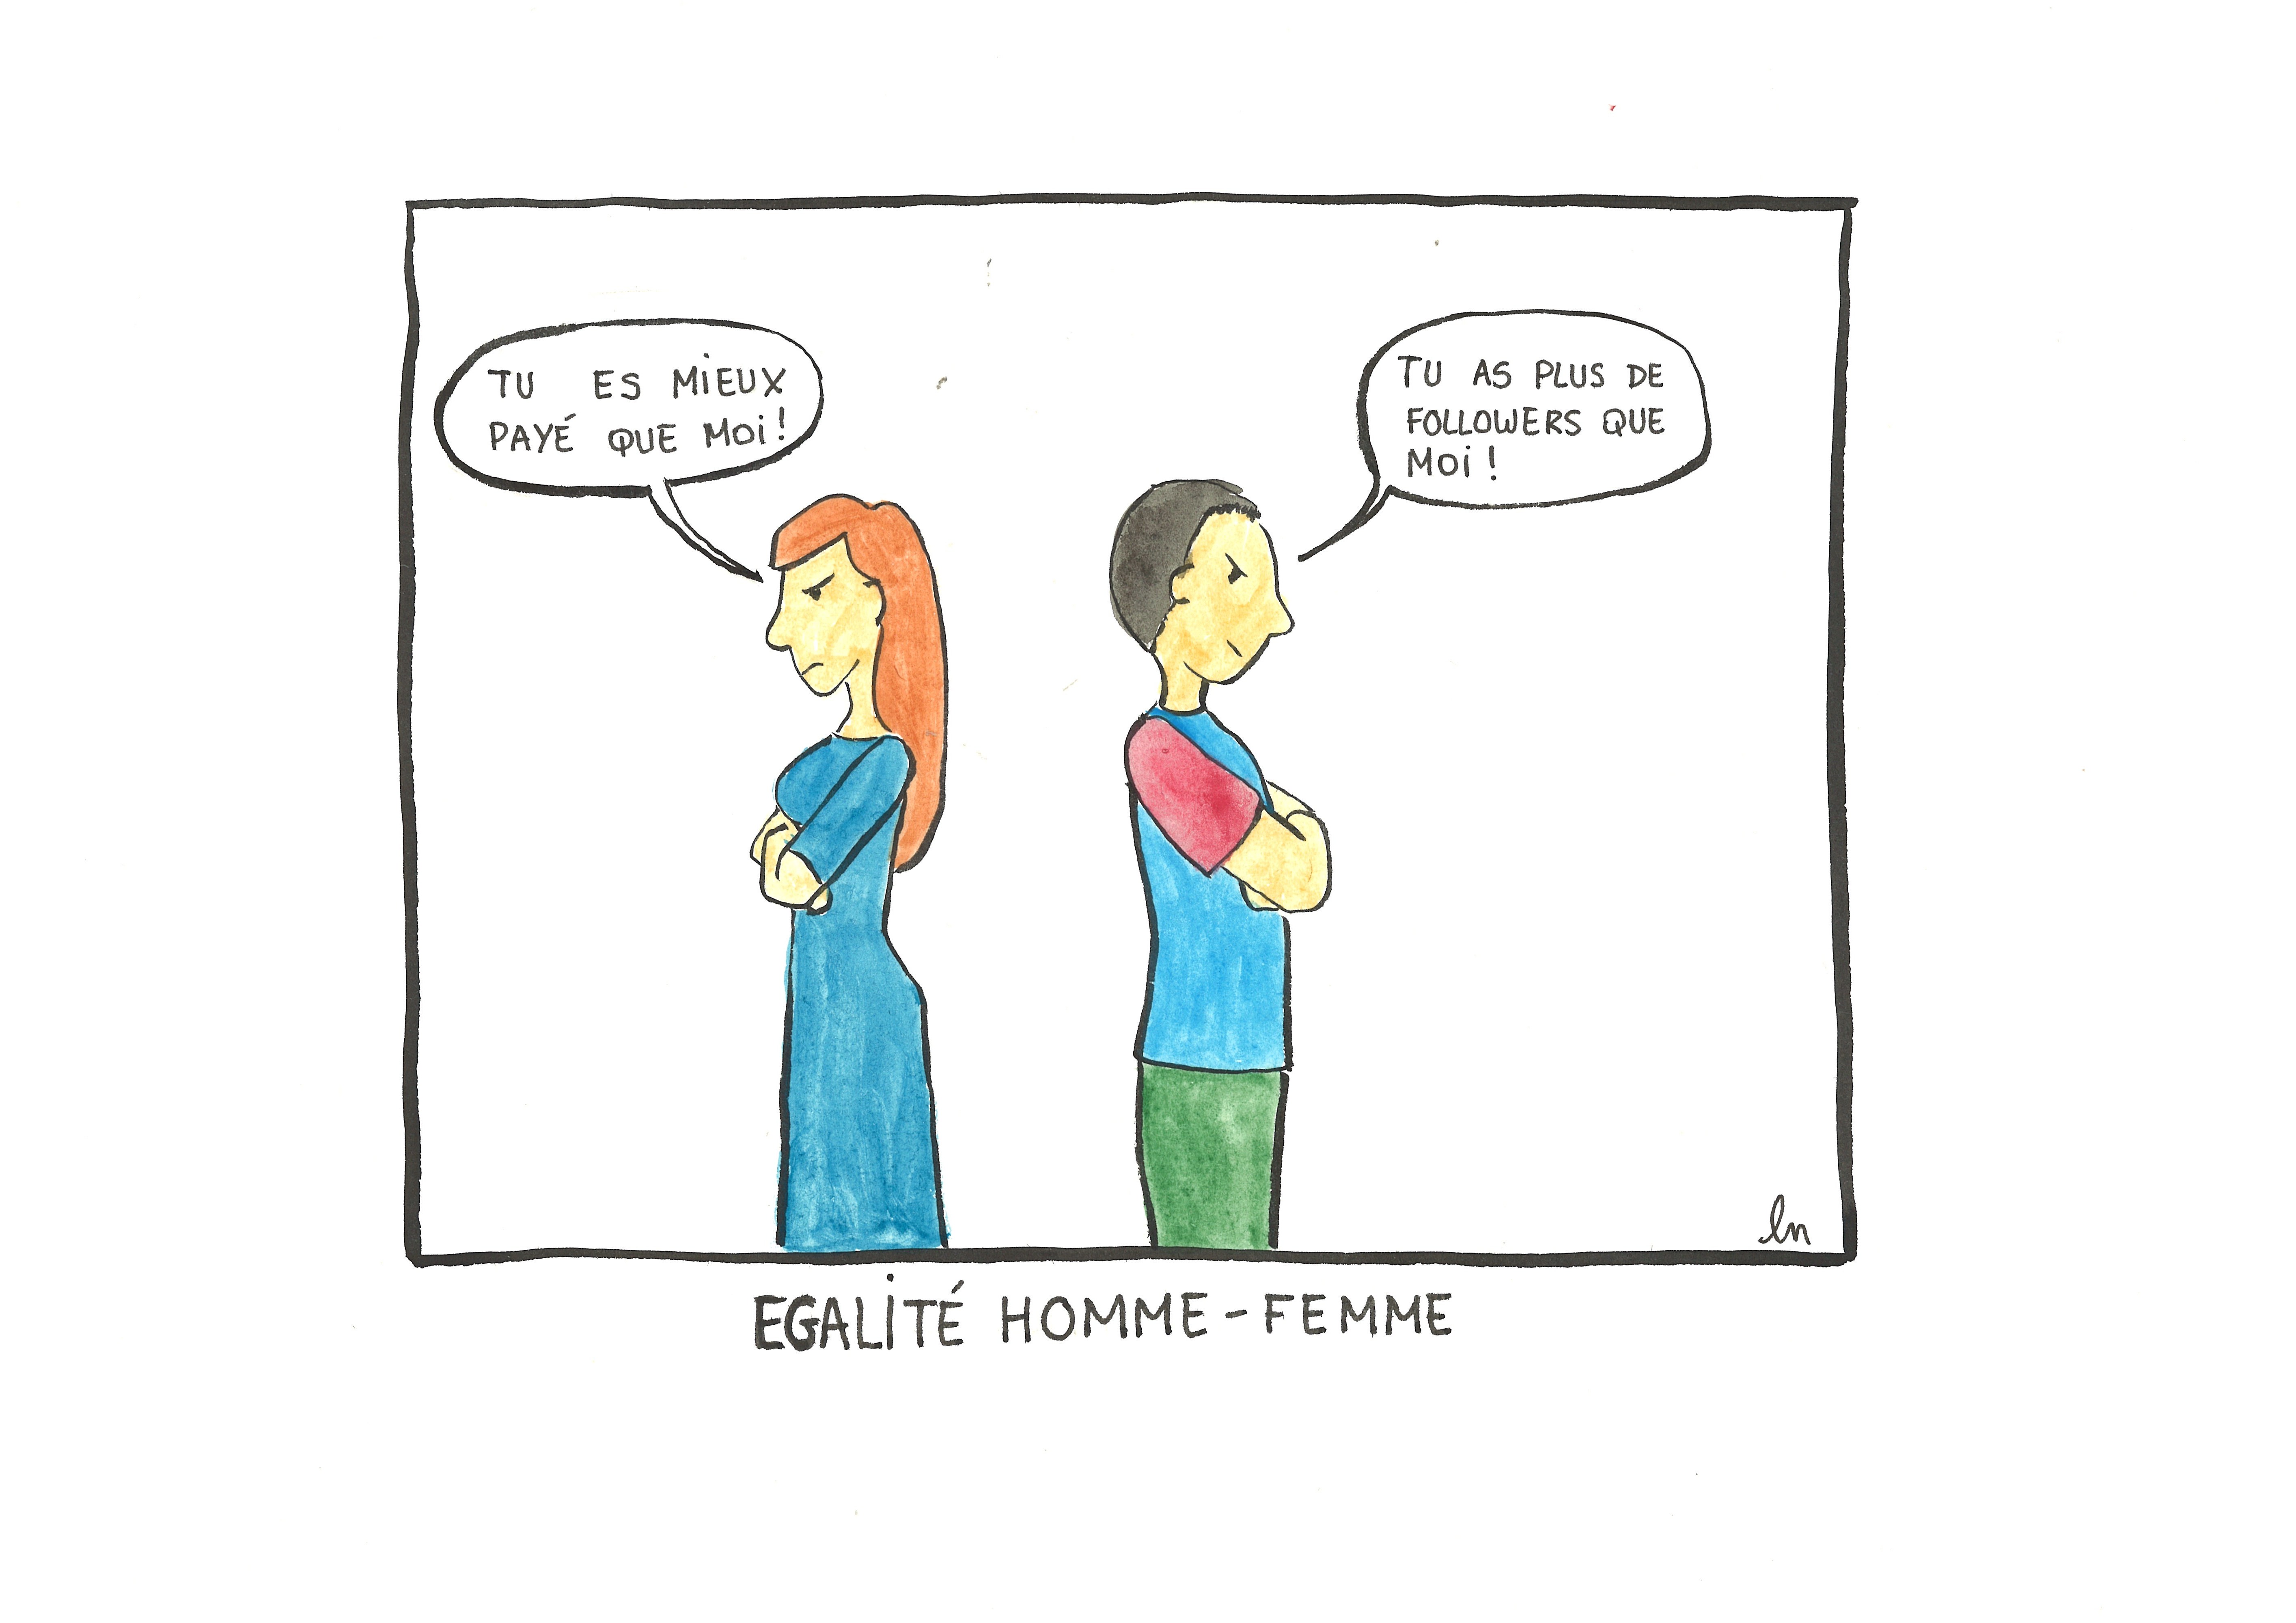 TU ES MIEUX
PAYÉ QUE MOI!
TU AS PLUS DE
FOLLOWERS QUE
MOI!
EGALITÉ HOMME-FEMME